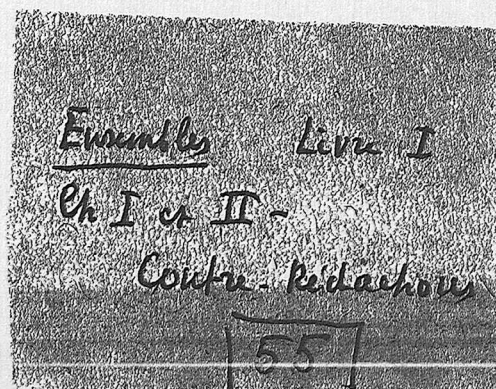 Ensembles Livre I
Ch I et II -
Contre-Rédactions
55